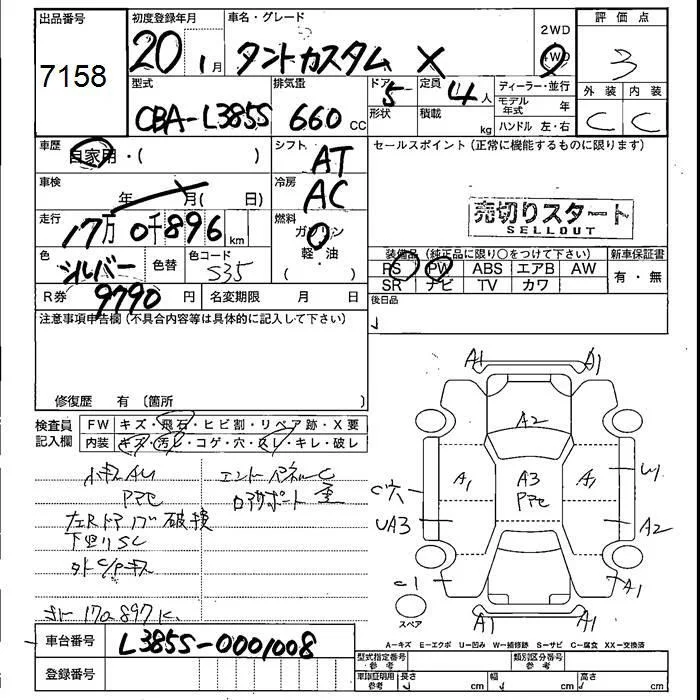 出品番号 初度登録年月 車名・グレード 2WD 評価点
7158 20 1月 タントカスタム X 4WD 3
型式 排気量 ドア 定員 ディーラー・並行 外装 内装
CBA-L385S 660cc 5 4人 モデル年式 年 C C
形状 積載 kg ハンドル 左・右
車歴 自家用・( ) シフト AT セールスポイント(正常に機能するものに限ります)
車検 年 月( 日) 冷房 AC
売切りスタート
SELLOUT
走行 17万0千896km 燃料 ガソリン 軽・油
装備品(純正品に限り○をつけて下さい) 新車保証書
色 シルバー 色替 色コード S35 PS PW ABS エアB AW 有・無
SR ナビ TV カワ
R券 9790円 名変期限 月 日 後日品
注意事項申告欄(不具合内容等は具体的に記入して下さい)
修復歴 有(箇所
検査員記入欄 FW キズ・飛石・ヒビ割・リペア跡・X要
内装 キズ・汚レ・コゲ・穴・スレ・キレ・破レ
小キズAU エンドパネルC
Pアセ
左Rドア 破損
下回りSC
外C/Pキズ
170897K
A1 A1
A2
A1 A3 Pアセ A1 U1
C穴
UA3 A2
C1 A1
スペア A1 A1
A=キズ E=エクボ U=凹み W=補修跡 S=サビ C=腐食 XX=交換済
車台番号 L385S-0001008
登録番号
型式指定番号参考 類別区分番号参考
車庫証明用参考 長さ cm 幅 cm 高さ cm